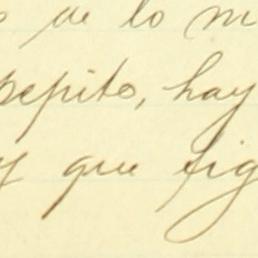 s de lo m
pepito, hay
y que fig